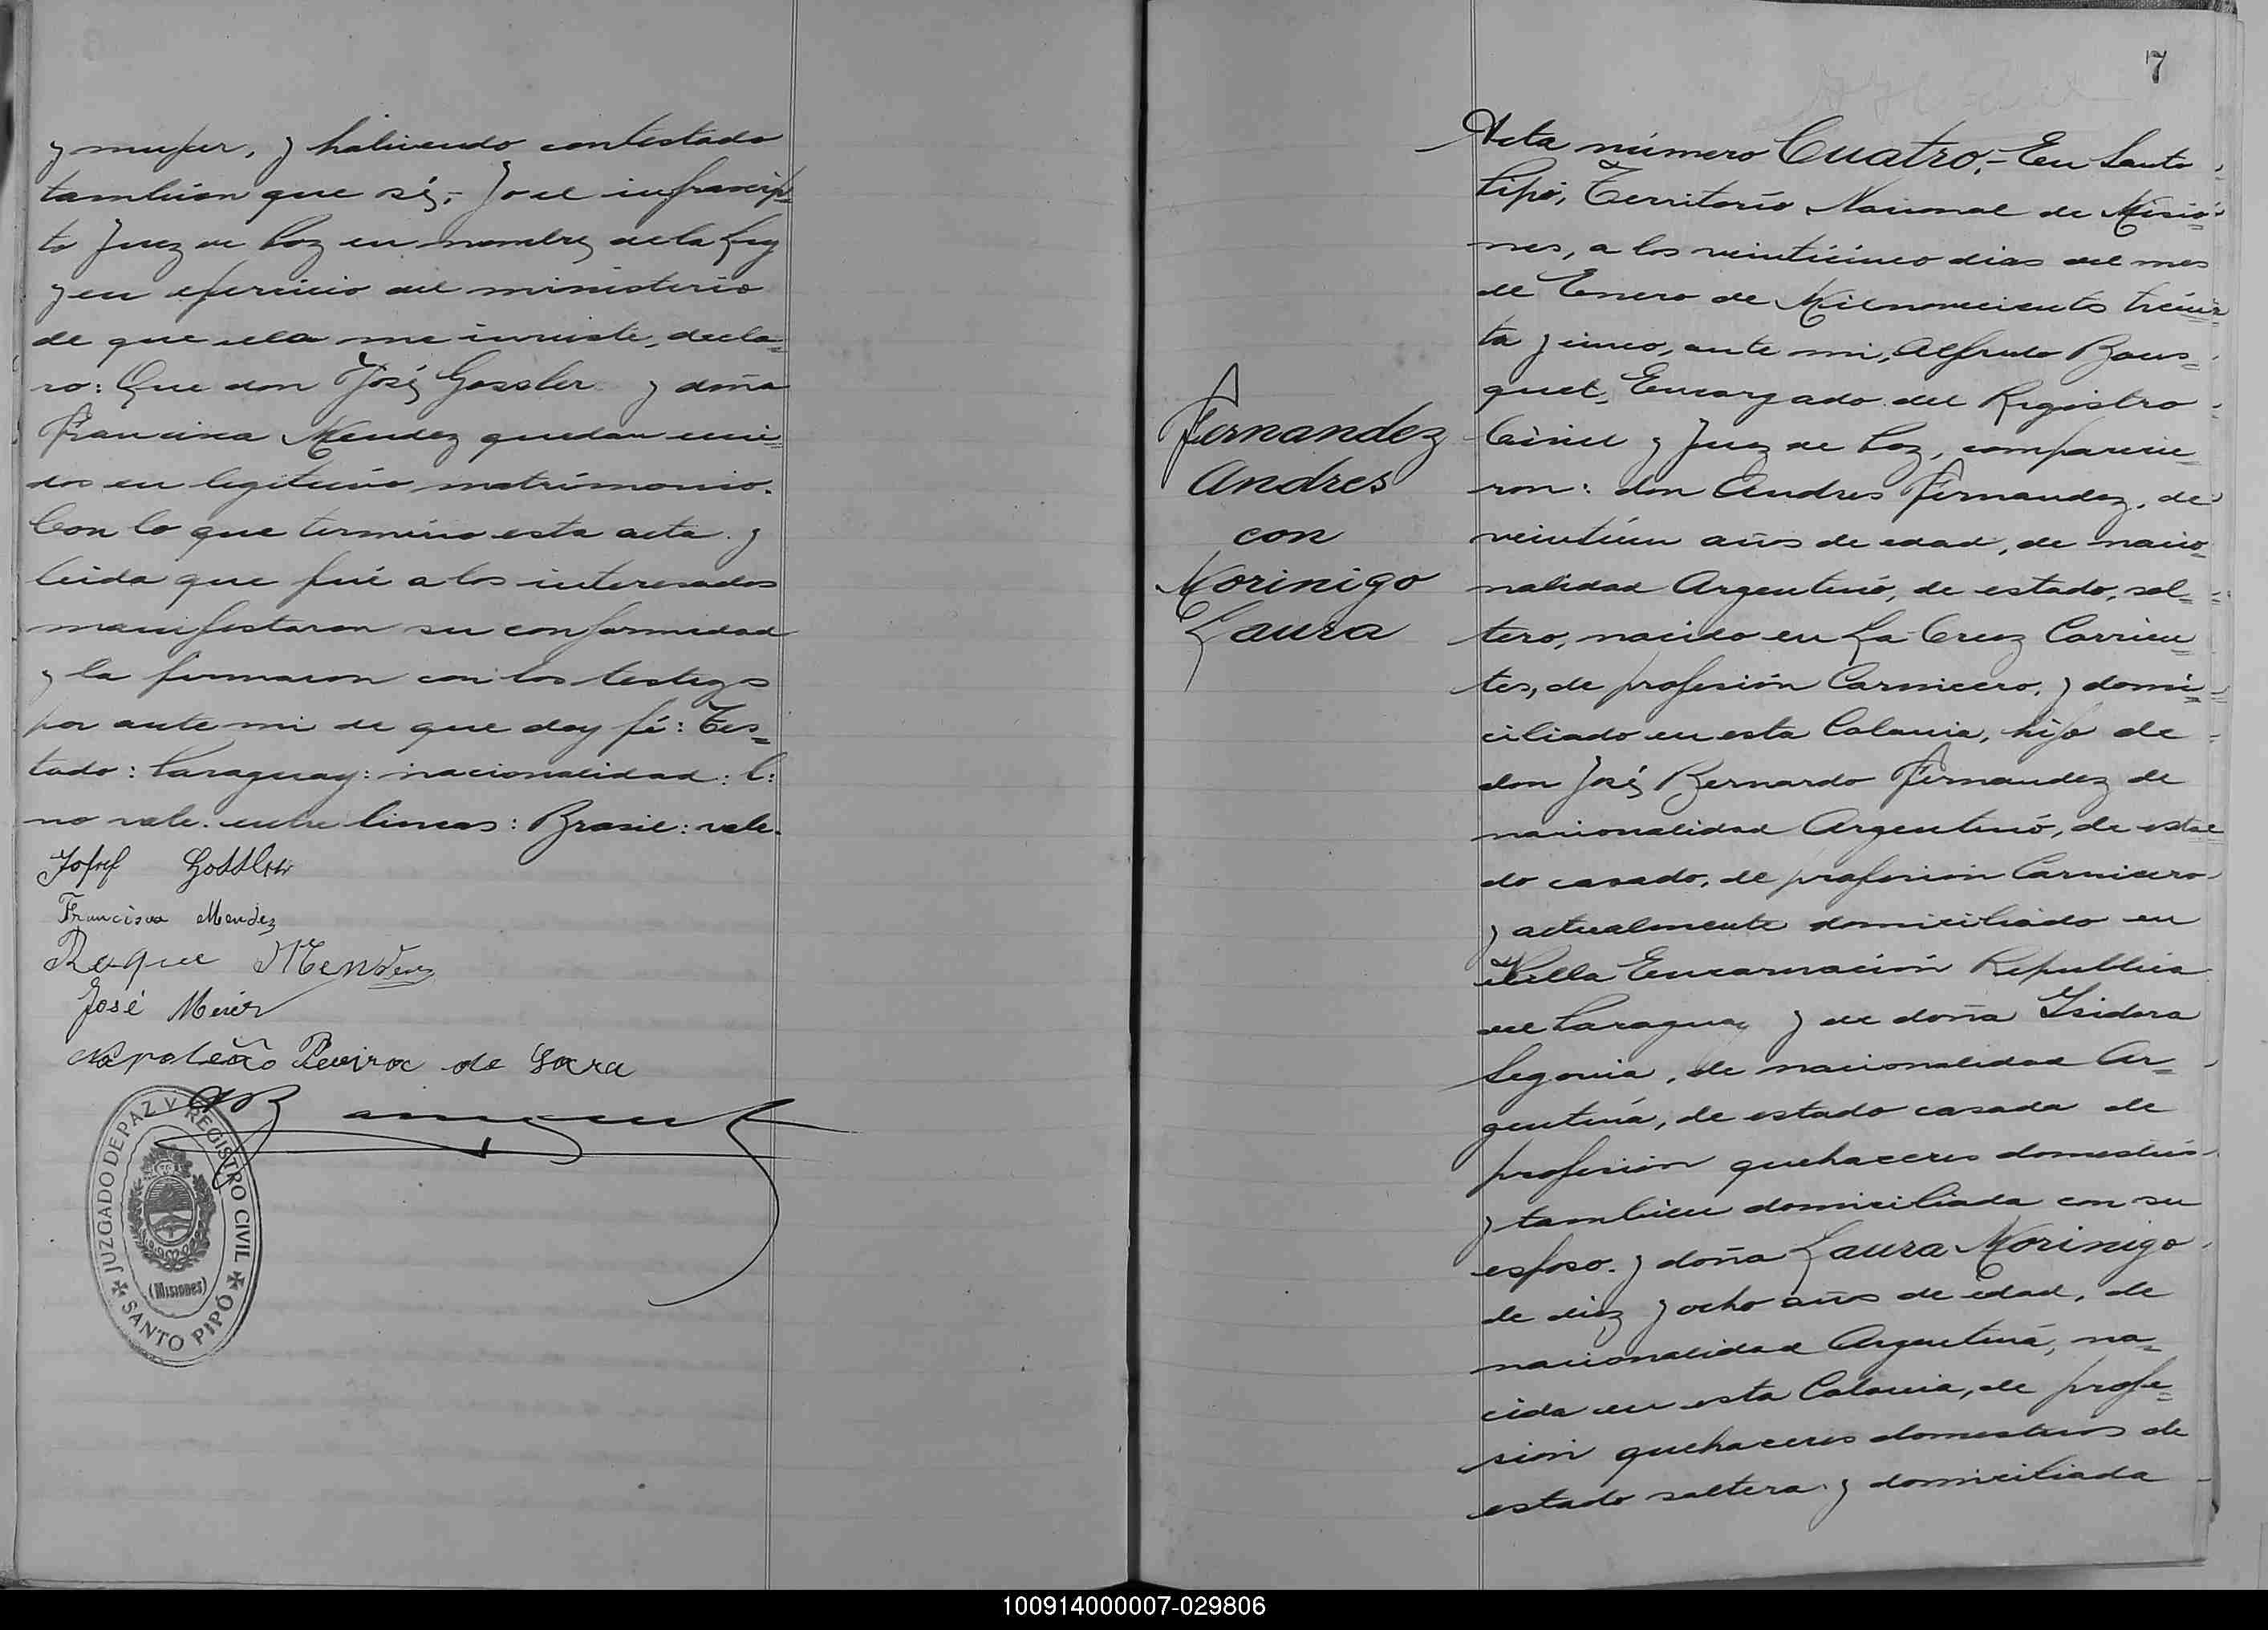 y mujer, y habiendo contestado
tambien que sí,- Yo el infrascrip=
to Juez de Paz en nombre de la Ley
y en ejercicio del ministerio
de que ella me inviste, decla=
ro: Que don José Gossler y doña
Francisca Mendez quedan uni=
dos en legitimo matrimonio.
Con lo que termino esta acta y
leida que fué a los interesados
manifestaron su conformidad
y la firmaron con los testigos
por ante mi de que doy fé: Tes=
tado: Paraguay: nacionalidad: P:
no vale. entre lineas: Brasil: vale.
Josef Gossler
Francisca Mendez
Roque Mendez
José Meier
Napoleão Pereira de
JUZGADO DE PAZ Y REGISTRO CIVIL
(MISIONES)
SANTO PIPÓ
7
Fernandez
Andres
con
Morinigo
Laura
Acta número Cuatro.- En Santo
Pipó, Territorio Nacional de Misio=
nes, a los veinticinco dias del mes
de Enero de Milnovecientos trein=
ta y cinco, ante mi, Alfredo Bous=
quet, Encargado del Registro
Civil y Juez de Paz, comparecie=
ron: don Andres Fernandez, de
veintiún años de edad, de nacio=
nalidad Argentino, de estado, sol=
tero, nacido en La Cruz Corrien=
tes, de profesión Carnicero, y domi=
ciliado en esta Colonia, hijo de
don José Bernardo Fernandez de
nacionalidad Argentino, de esta=
do casado, de profesión Carnicero
y actualmente domiciliado en
Villa Encarnación Republica
del Paraguay y de doña Isidora
Segovia, de nacionalidad Ar=
gentina, de estado casada de
profesión quehaceres domesticos
y tambien domiciliada con su
esposo. y doña Laura Morinigo
de diez y ocho años de edad, de
nacionalidad Argentina, na=
cida en esta Colonia, de profe=
sion quehaceres domesticos de
estado soltera y domiciliada
100914000007-029806